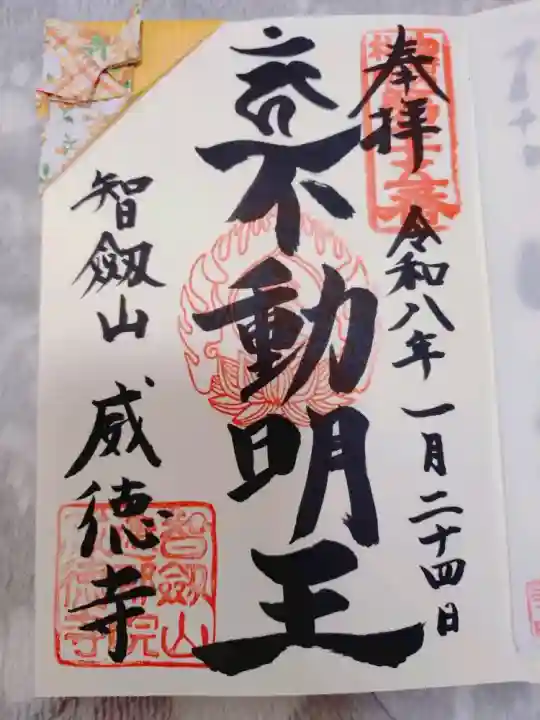 奉拝 令和八年一月二十四日
不動明王
智劔山 威徳寺
智劔山
寺